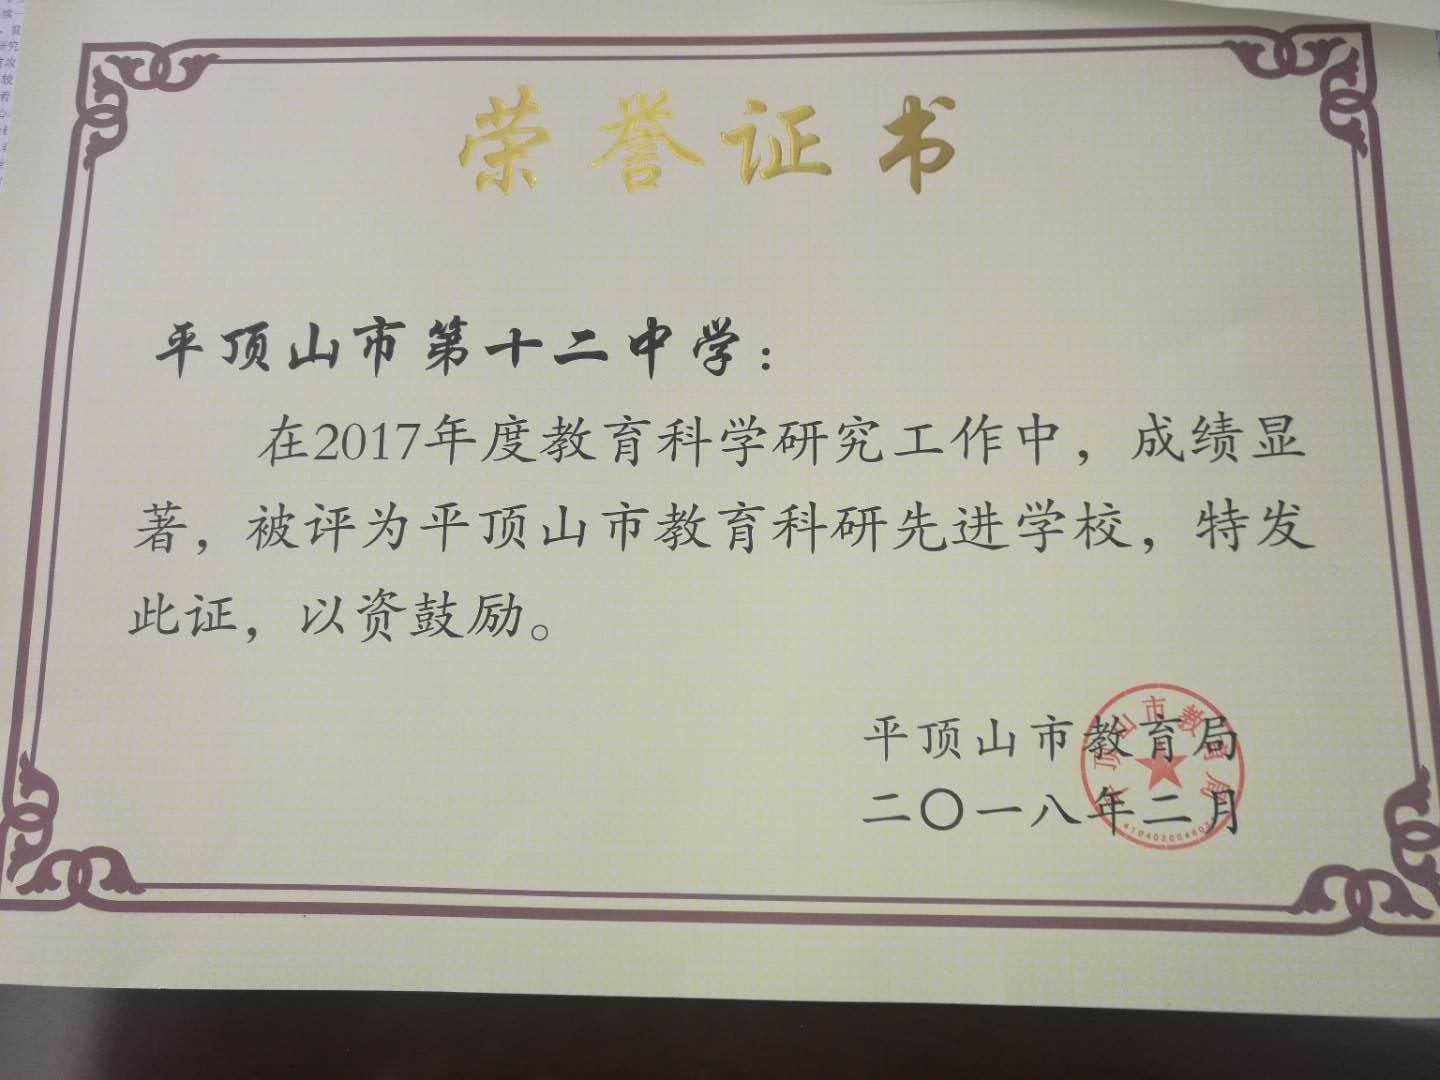 荣誉证书
平顶山市第十二中学：
在2017年度教育科学研究工作中，成绩显
著，被评为平顶山市教育科研先进学校，特发
此证，以资鼓励。
平顶山市教育局
二〇一八年二月
平顶山市教育局